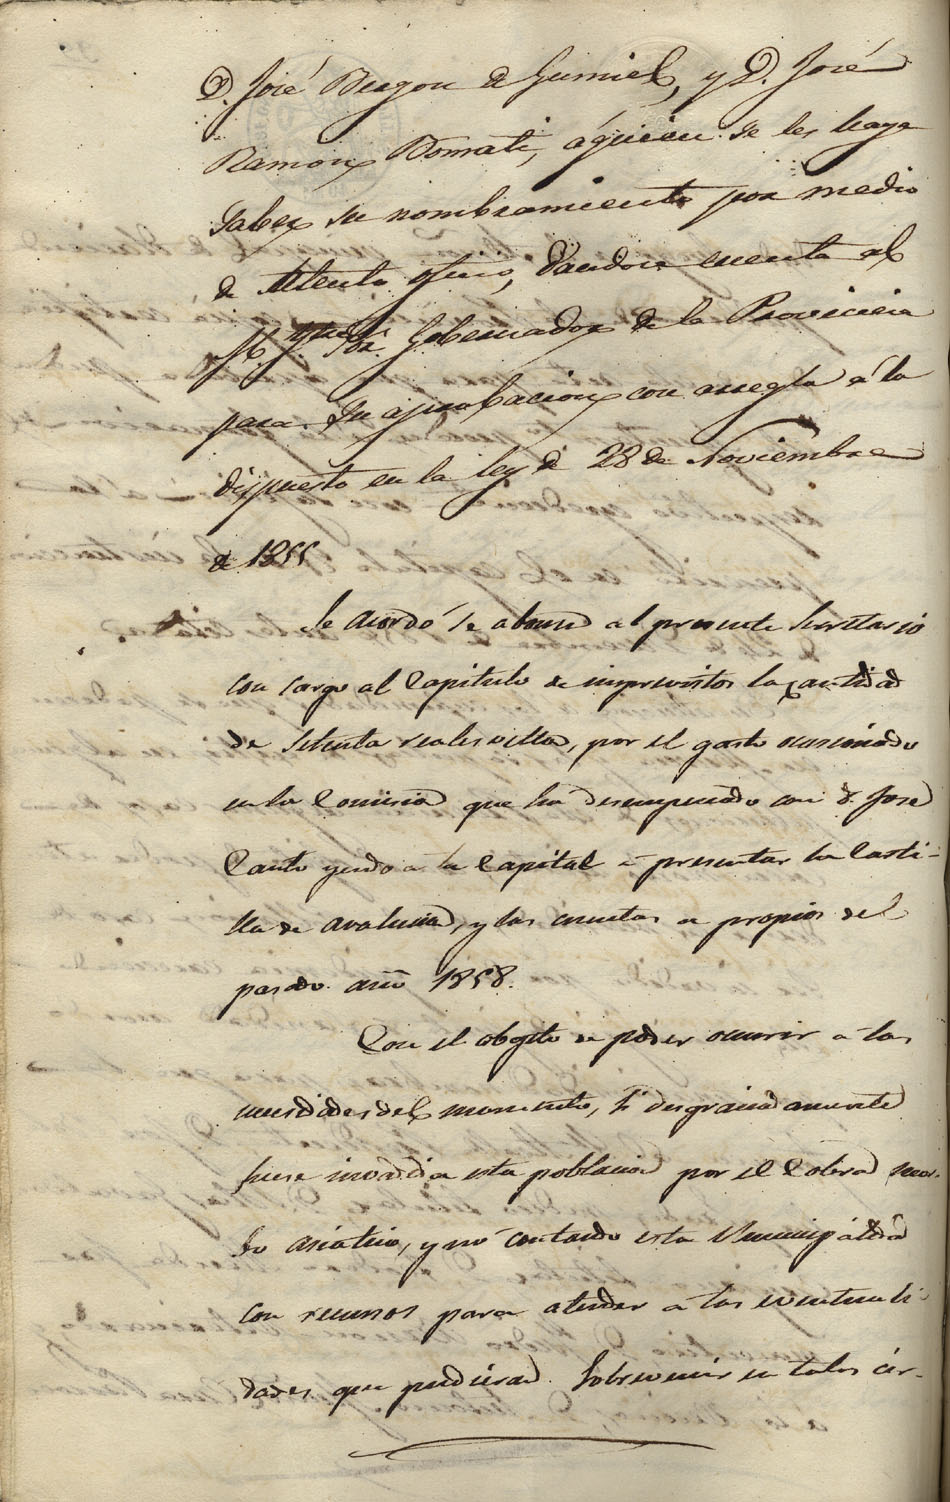 D. José Dragon de Gumiel, y D. José
Ramon Domati, a quien se les haga
saber su nombramiento por medio
de Atento oficio, dandose cuenta al
M. Yltre Sor. Gobernador de la Provincia
para su aprobacion con arreglo á lo
dispuesto en la ley de 28 de Noviembre
de 1855
Se Acordó se abone al presente Secretario
con cargo al Capitulo de imprevistos la cantidad
de Setenta reales vellon, por el gasto ocasionado
en la Comision que ha desempeñado con D. José
Canto yendo a la Capital a presentar la Carti-
lla de avaluacion, y las cuentas de propios del
pasado año 1858.
Con el obgeto de poder ocurrir a las
necesidades del momento, si desgraciadamente
fuese invadida esta poblacion por el Colera mor-
bo asiatico, y no contando esta Municipalidad
con recursos para atender a las eventuali-
dades que pudieran sobrevenir en tales cir-